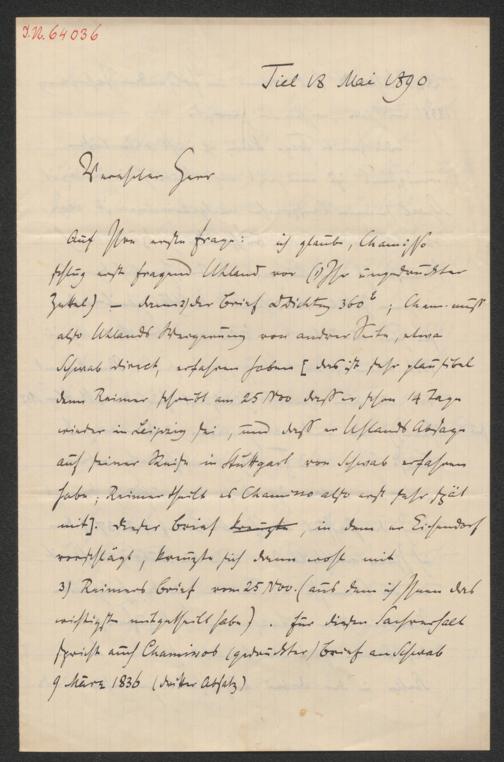 I.N. 64036
Kiel 18 Mai 1890
Verehrter Herr
Auf Ihre erste Frage: ich glaube, Chamisso
schlug erst fragend Uhland vor (1) Ihr ungedruckter
Zettel) – dann 2) der Brief 360 b; Cham. muß
also Uhlands Weigerung von andrer Seite, etwa
Schwab direct, erfahren haben [das ist sehr plausibel
denn Reimer schreibt am 25 Nov daß er schon 14 Tage
wieder in Leipzig sei, und daß er Uhlands Absage
auf seiner Reise in Stuttgart von Schwab erfahren
habe; Reimer theilt es Chamisso also erst sehr spät
mit]. Dieser Brief kreuzte, in dem er Eichendorf
vorschlägt, kreuzte sich dann wohl mit
3) Reimers Brief vom 25 Nov. (aus dem ich Ihnen das
wichtigste mitgetheilt habe). Für diesen Sachverhalt
spricht auch Chamissos (gedruckter) Brief an Schwab
9 März 1836 (dritter Absatz)